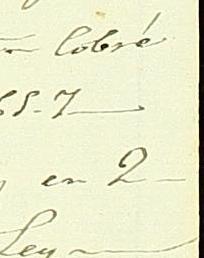 Cobré
65-7
en 2
Ley